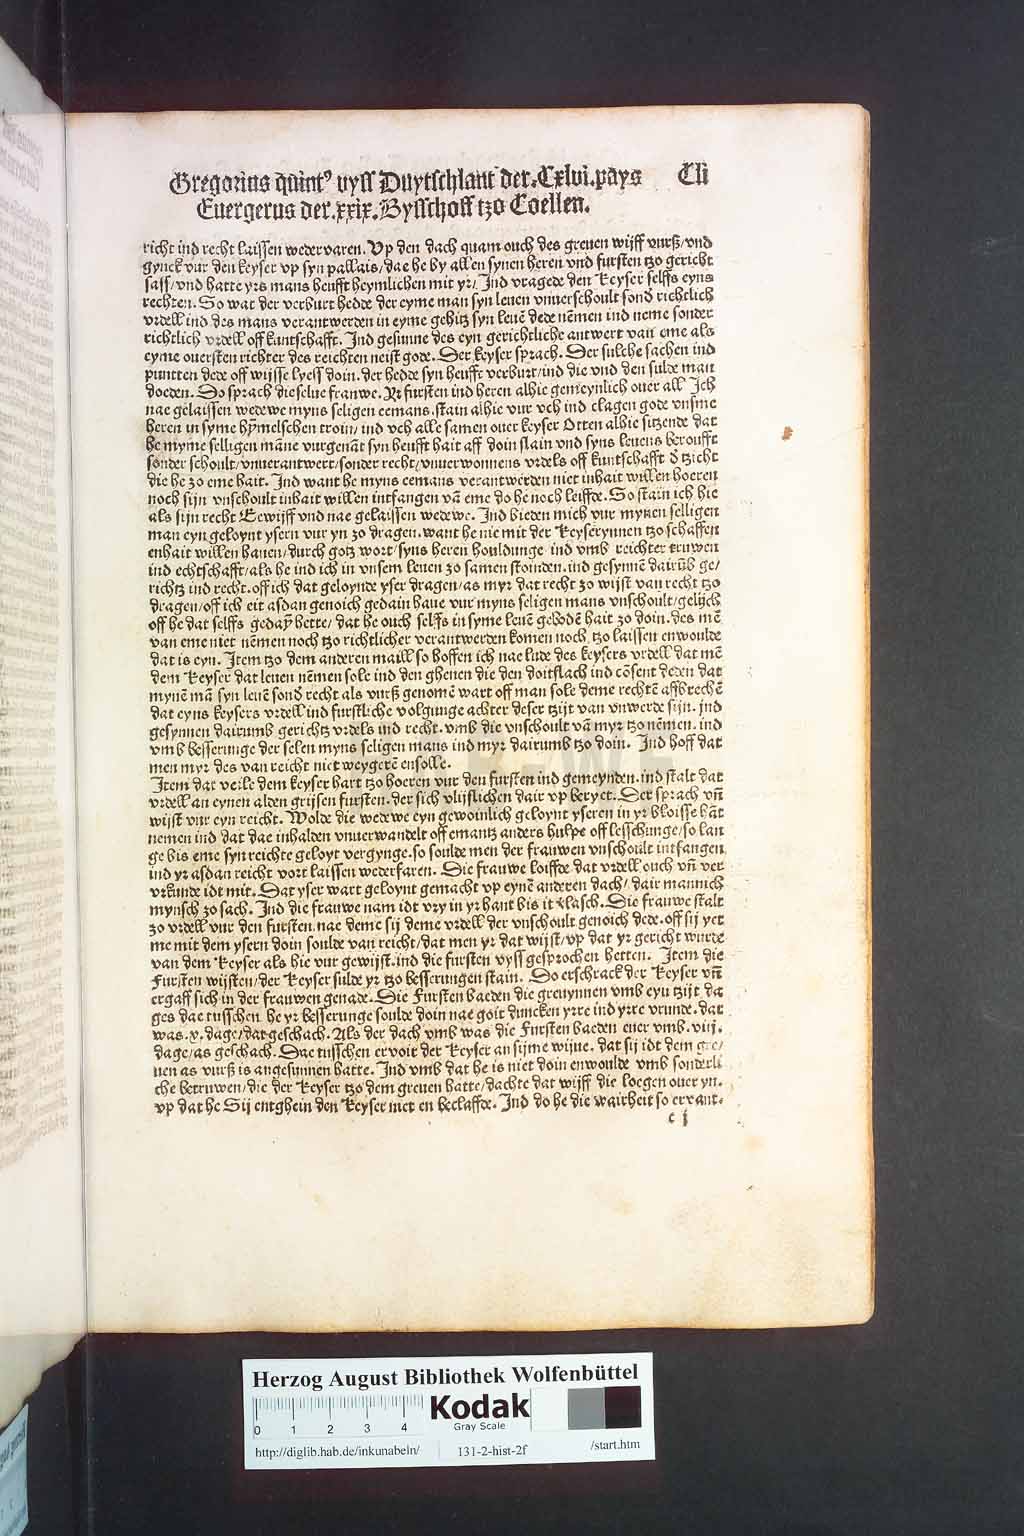 Gregorius quint⁹ uyss Duytschlant der .Cxlvi. pays Cli
Euergerus der .xxix. Bysschoff tzo Coellen.
richt ind recht laissen wedervaren. Vp den dach quam ouch des greuen wijff vurß/vnd
gynck vur den keyser vp syn pallais/dae he by allen synen heren vnd fursten tzo gericht
sass/vnd hatte yrs mans heufft heymlichen mit yr/. Ind vragede den Keyser selffs eyns
rechten. So wat der verburt hedde der eyme man syn leuen vnuerschoult sond̄ richtlich
vrdell ind des mans verantwerden in eyme gehitz syn leuē dede nēmen ind neme sonder
richtlich vrdell off kuntschafft. Ind gesunne des eyn gerichtliche antwert van eme als
eyme ouersten richter des reichten neist gode. Der keyser sprach. Der sulche sachen ind
puntten dede off wijsse lyess doin. der hedde syn heufft verburt/ind die vnd den sulde man
doeden. So sprach dieselue frauwe. Yr fursten ind heren alhie gemeynlich ouer all Ich
nae gelaissen wedewe myns seligen eemans. stain alhie vur vch ind clagen gode vnsme
heren in syme hymelschen troin/ ind vch alle samen ouer keyser Otten alhie sitzende dat
he myme selligen māne vurgenāt syn heufft hait aff doin slain vnd syns leuens berouft
sonder schoult/vnuerantwert/sonder recht/vnuerwonnens vrdels off kuntschafft d̄ tzicht
die he zo eme hait. Ind want he myns eemans verantwerden niet inhait willen hoeren
noch sijn vnschoult inhait willen intfangen vā eme do he noch leiffde. So stain ich hie
als sijn recht Eewijff vnd nae gelaissen wedewe. Ind bieden mich vur mynen selligen
man eyn geloynt ysern vur yn zo dragen. want he nie mit der Keyserynnen tzo schaffen
enhait willen hauen/durch gotz wort/syns heren houldunge ind vmb reichter truwen
ind echtschafft/als he ind ich in vnsem leuen zo samen stoinden. ind gesynnē dairūb ge/
richtz ind recht. off ich dat geloynde yser dragen/as myr dat recht zo wijst van recht tzo
dragen/off ich eit asdan genoich gedain haue vur myns seligen mans vnschoult/gelijch
off he dat selffs gedaỹ hette/ dat he ouch selffs in syme leuē gebodē hait zo doin. des mē
van eme niet nēmen noch tzo richtlicher verantwerden komen noch tzo laissen enwoulde
dat is eyn. Item tzo dem anderen maill so hoffen ich nae lude des keysers vrdell dat mē
dem Keyser dat leuen nēmen sole ind den ghenen die den doitslach ind cōsent deden dat
mynē mā syn leuē sond̄ recht als vurß genomē wart off man sole deme rechtē affbrechē
dat eyns keysers vrdell ind furstliche volgunge achter deser tzijt van vnwerde sijn. ind
gesynnen dairumb gerichtz vrdels ind recht. vmb die vnschoult vā myr tzo nēmen. ind
vmb besserunge der selen myns seligen mans ind myr dairumb tzo doin. Ind hoff dat
men myr des van reicht niet weygerē ensolle.
Item dat veile dem keyser hart tzo hoeren vur den fursten ind gemeynden. ind stalt dat
vrdell an eynen alden grijsen fursten. der sich vlijslichen dair vp beryet. Der sprach vñ
wijst vur eyn reicht. Wolde die wedewe eyn gewoinlich geloynt yseren in yr bloisse hāt
nemen ind dat dae inhalden vnuerwandelt off emantz anders hulpe off lesschunge/so lan
ge bis eme syn reichte geloyt vergynge. so soulde men der frauwen vnschoult intfangen
ind yr asdan reicht vort laissen wederfaren. Die frauwe loiffde dat vrdell ouch vñ ver
vrkunde idt mit. Dat yser wart geloynt gemacht vp eynē anderen dach/ dair mannich
mynsch zo sach. Ind die frauwe nam idt vry in yr hant bis it vlasch. Die frauwe stalt
zo vrdell vur den fursten. nae deme sij deme vrdell der vnschoult genoich dede. off sij yet
me mit dem ysern doin soulde van reicht/dat men yr dat wijst/vp dat yr gericht wurde
van dem Keyser als hie vur gewijst. ind die fursten vyss gesprochen hetten. Item die
Fursten wijsten/der Keyser sulde yr tzo besserungen stain. Do erschrack der Keyser vñ
ergaff sich in der frauwen genade. Die Fursten baeden die greuynnen vmb eyn tzijt da
ges dae tusschen he yr besserunge soulde doin nae goit duncken yrre ind yrre vrunde. dat
was .x. dage/dat geschach. Als der dach vmb was die Fursten baeden euer vmb .viij.
dage/as geschach. Dae tusschen ervoir der Keyser an sijme wijue. dat sij idt dem gre/
uen as vurß is angesunnen hatte. Ind vmb dat he is niet doin enwoulde vmb sonderli
che betruwen/die der Keyser tzo dem greuen hatte/dachte dat wijff die loegen ouer yn.
vp dat he Sij entghein den Keyser niet en beclaffde. Ind do he die wairheit so ervant.
c j
Herzog August Bibliothek Wolfenbüttel
0 1 2 3 4
Kodak
Gray Scale
http://diglib.hab.de/inkunabeln/ 131-2-hist-2f /start.htm